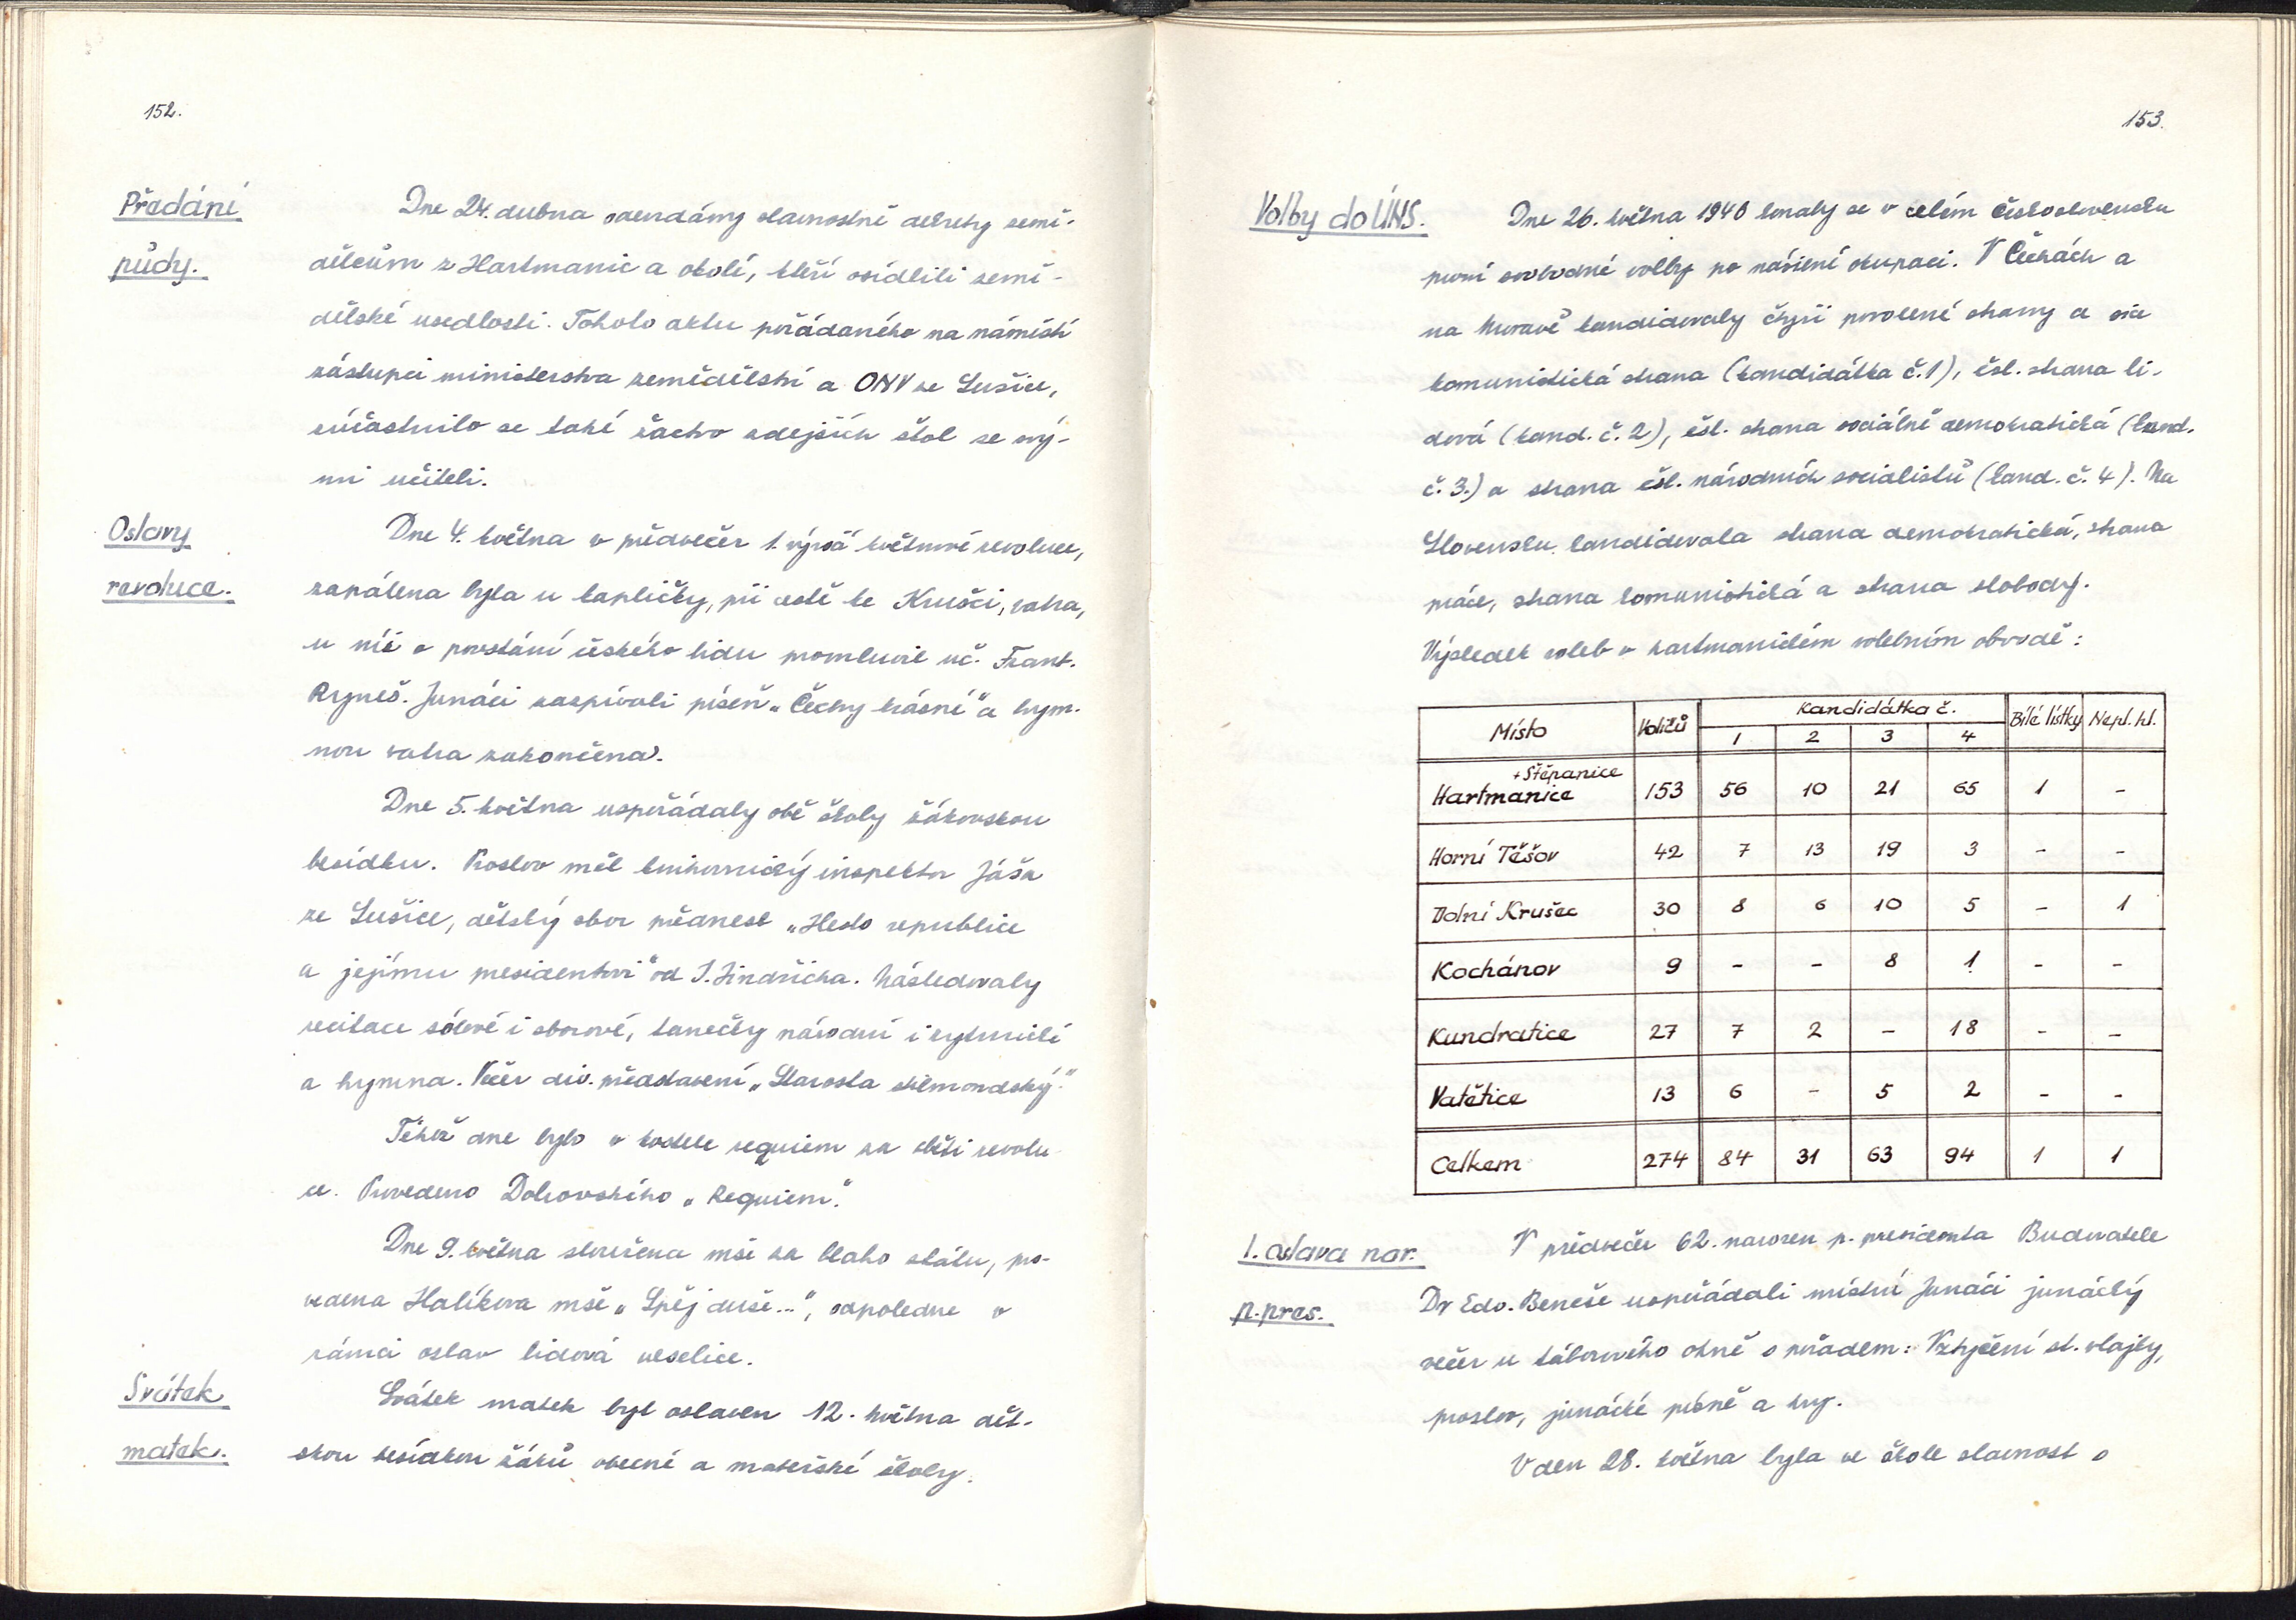 152.
Předání
půdy.
Dne 24. dubna odevzdány slavnostně dekrety země-
dělcům z Hartmanic a okolí, kteří osídlili země-
dělské usedlosti. Tohoto aktu pořádaného na náměstí
zástupci ministerstva zemědělství a ONV ze Sušice,
zúčastnilo se také žactvo zdejších škol se svý-
mi učiteli.
Oslavy
revoluce.
Dne 4. května v předvečer 1. výročí květnové revoluce,
zapálena byla u kapličky, při cestě ke Krušci, vatra,
u níž o povstání českého lidu promluvil uč. Frant.
Ryneš. Junáci zazpívali píseň „Čechy krásné" a hym-
nou vatra zakončena.
Dne 5. května uspořádaly obě školy žákovskou
besídku. Proslov měl knihovnický inspektor Jáša
ze Sušice, dětský sbor přednesl „Heslo republice
a jejímu presidentovi" od J. Jindřicha. Následovaly
recitace sólové i sborové, tanečky národní i rytmické
a hymna. Večer div. představení „Starosta stilmondský."
Téhož dne bylo v kostele requiem za oběti revolu-
ce. Provedeno Dobrovského „Requiem."
Dne 9. května sloužena mše za blaho státu, pro-
vedena Halíkova mše „Spěj duše...", odpoledne v
rámci oslav lidová veselice.
Svátek
matek.
Svátek matek byl oslaven 12. května dět-
skou besídkou žáků obecné a mateřské školy.
153.
Volby do ÚNS.
Dne 26. května 1946 konaly se v celém Československu
první svobodné volby po násilné okupaci. V Čechách a
na Moravě kandidovaly čtyři povolené strany a sice
komunistická strana (kandidátka č. 1), čsl. strana li-
dová (kand. č. 2), čsl. strana sociálně demokratická (kand.
č. 3.) a strana čsl. národních socialistů (kand. č. 4). Na
Slovensku kandidovala strana demokratická, strana
práce, strana komunistická a strana slobody.
Výsledek voleb v hartmanickém volebním obvodě:
Místo Voličů Kandidátka č. Bílé lístky Nepl. hl.
1 2 3 4
+ Štěpanice
Hartmanice 153 56 10 21 65 1 -
Horní Těšov 42 7 13 19 3 - -
Dolní Krušec 30 8 6 10 5 - 1
Kochánov 9 - - 8 1 - -
Kundratice 27 7 2 - 18 - -
Vatětice 13 6 - 5 2 - -
Celkem 274 84 31 63 94 1 1
1. oslava nar.
p. pres.
V předvečer 62. narozen p. presidenta Budovatele
Dr Edv. Beneše uspořádali místní Junáci junácký
večer u táborového ohně s pořadem: Vztyčení st. vlajky,
proslov, junácké písně a hry.
V den 28. května byla ve škole slavnost s